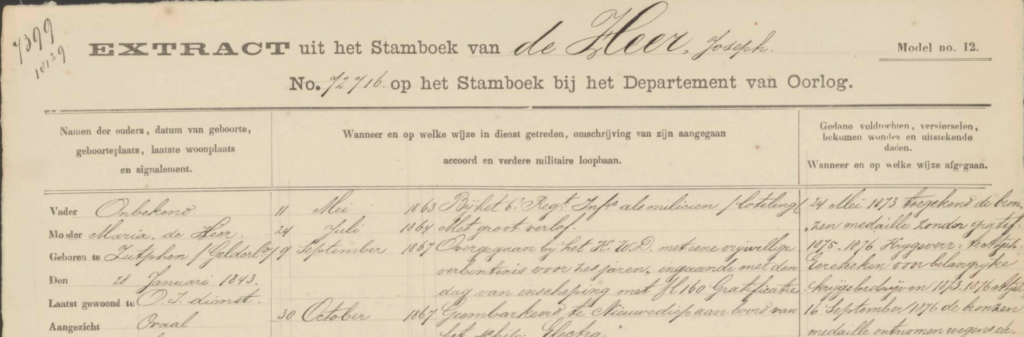 7399
10129
EXTRACT uit het Stamboek van de Heer, Joseph. Model no. 12.
No. 72716 op het Stamboek bij het Departement van Oorlog.
Namen der ouders, datum van geboorte,
geboorteplaats, laatste woonplaats
en signalement.
Wanneer en op welke wijze in dienst getreden, omschrijving van zijn aangegaan
accoord en verdere militaire loopbaan.
Gedane veldtochten, versierselen,
bekomen wondes en uitstekende
daden.
Wanneer en op welke wijze afgegaan.
Vader Onbekend
Moeder Maria de Heer
Geboren te Zutphen (Gelderl:)
Den 28 Januari 1843.
Laatst gewoond te O.I. dienst
Aangezicht Ovaal
11 Mei 1863 Bij het 6e Regt Infie als milicien /loteling/
24 Juli 1864 Met groot verlof.
9 September 1867 Overgegaan bij het K.W.D. met eene vrijwillige
verbintenis voor zes jaren, ingaande met den
dag van inscheping met ƒ160 Gratificatie
30 October 1867 Geembarkeerd te Nieuwediep aan boord van
het schip Electra
24 Mei 1873 toegekend de bron-
zen medaille zonder gratif:
1875. 1876 Krijgsverr: te Atjeh
Eereteeken voor belangrijke
krijgsbedrijven 1873. 1876 Atjeh
16 September 1876 de bronzen
medaille ontnomen wegens de